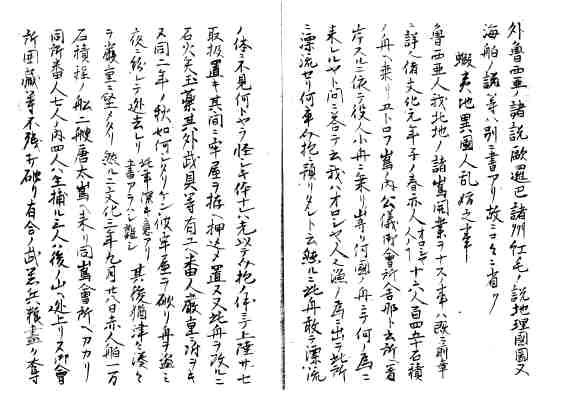 外魯西亜ノ諸説歐邏巴諸州紅毛ノ説地理國圖又
海舶ノ説等ハ別ニ書アリ故ニコヽニ省ク
蝦夷地異國人乱妨之事
魯西亜人我北地ノ諸嶌開業ヲナス事ハ改ニ前年
ニ詳ナ文化元年子ノ春赤人人十六人百四五十石積
ノ舟ヘ乗リヱトロフ嶌ノ内公儀御會所舎那ト云所ヘ着
岸スルニ依テ役人小舟ニ乗リ出守リ何國ノ舟ニテ何ノ為ニ
来レルヤト問ニ答テ云我ハヲロシヤ人ニ漁ノ為ニ出テ此所
ニ漂流セリ何卒ニ預リタシト云然ルニ此舟敢テ漂流
ノ体ニ不見何トヤラ怪シキ体ナルノ体ニテ上陸サセ
取扱置キ其間ニ牢屋ヲ拵ヘ押込メ置ス又此舟ヲ改ルニ
石火矢玉薬其外武具等有ユヘ番人厳重ニ附ヲキ
ヌ同二年ノ秋如何シタリケン彼牢屋ヲ破リ舟ヲ盗ミ
夜ニ紛レテ逃去レリ其後猶津々湊々
ヲ厳重ニ堅メタリ然ルニ文化三年九月廿八日赤人舶一万
石積程ノ舩二艘唐太嶌ヘ来リ同嶌會所ヘカカリ
同所番人七人ノ内四人ハ生捕ル三人ハ後ノ山ヘ逃上リヌ御會
所囲蔵等不残打破リ有合ノ武器兵粮盡ク奪